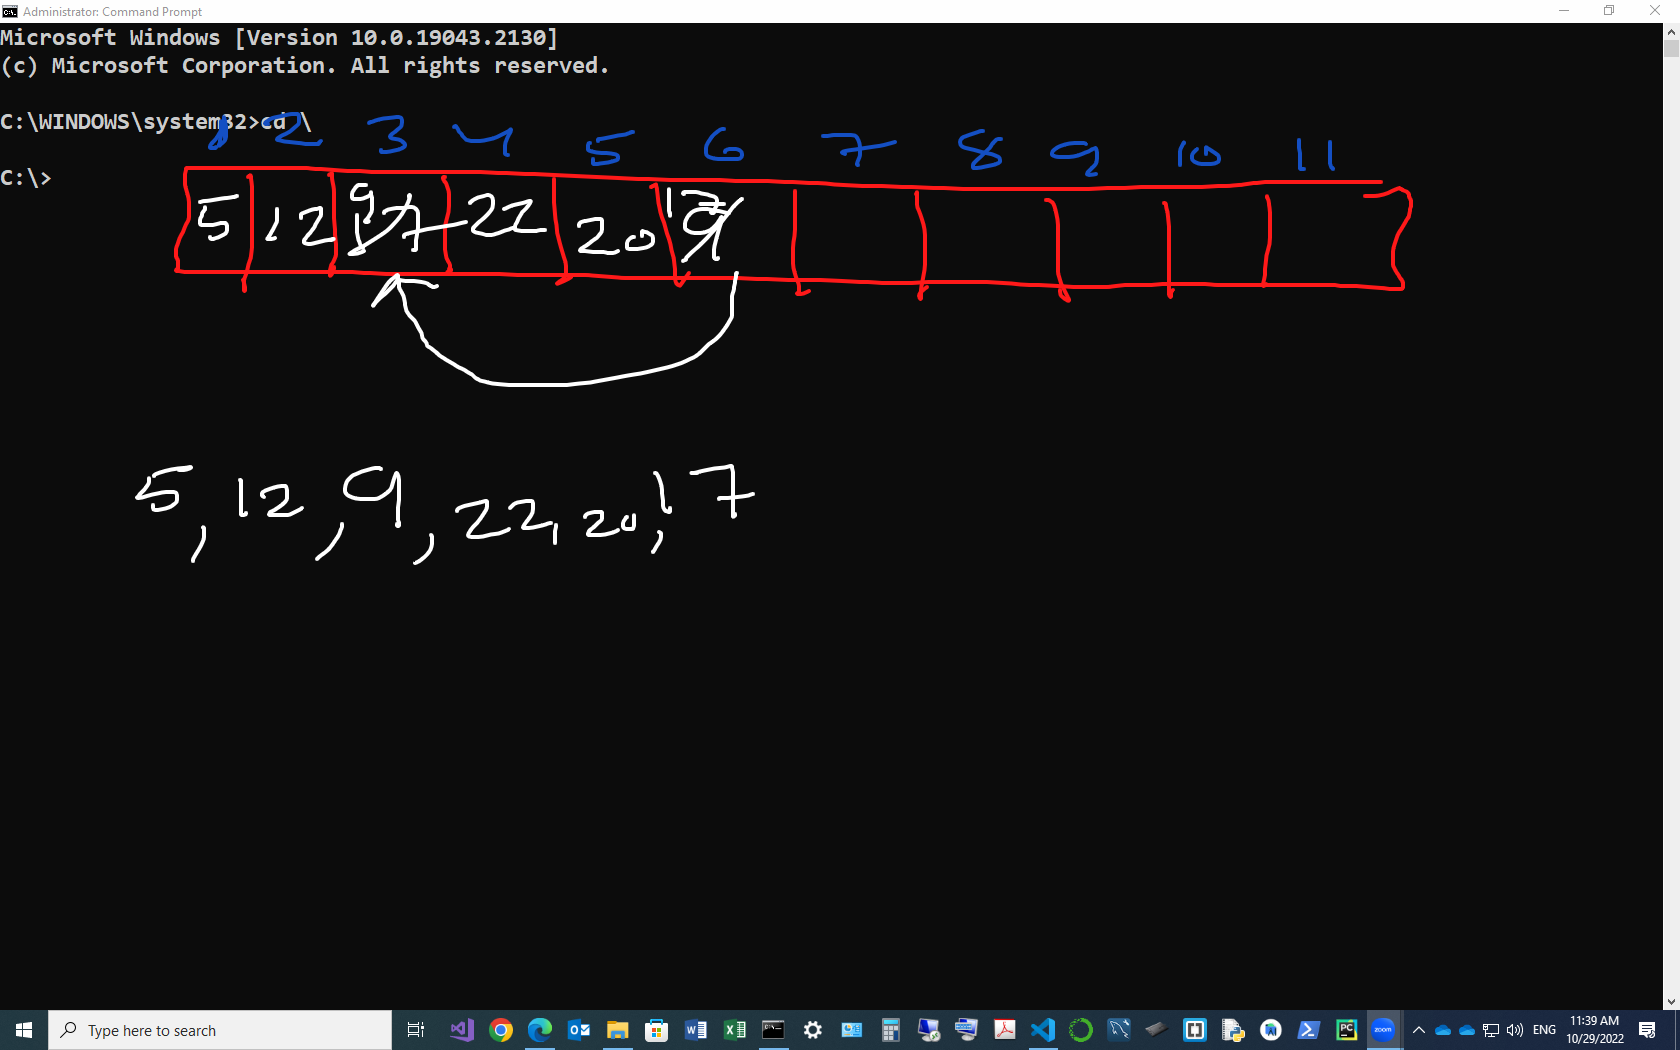 Administrator: Command Prompt
Microsoft Windows [Version 10.0.19043.2130]
(c) Microsoft Corporation. All rights reserved.
C:\WINDOWS\system32>cd \
1 2 3 4 5 6 7 8 9 10 11
C:\>
9 17
5 12 17 22 20 9
5, 12, 9, 22, 20, 17
Type here to search
ENG
11:39 AM
10/29/2022